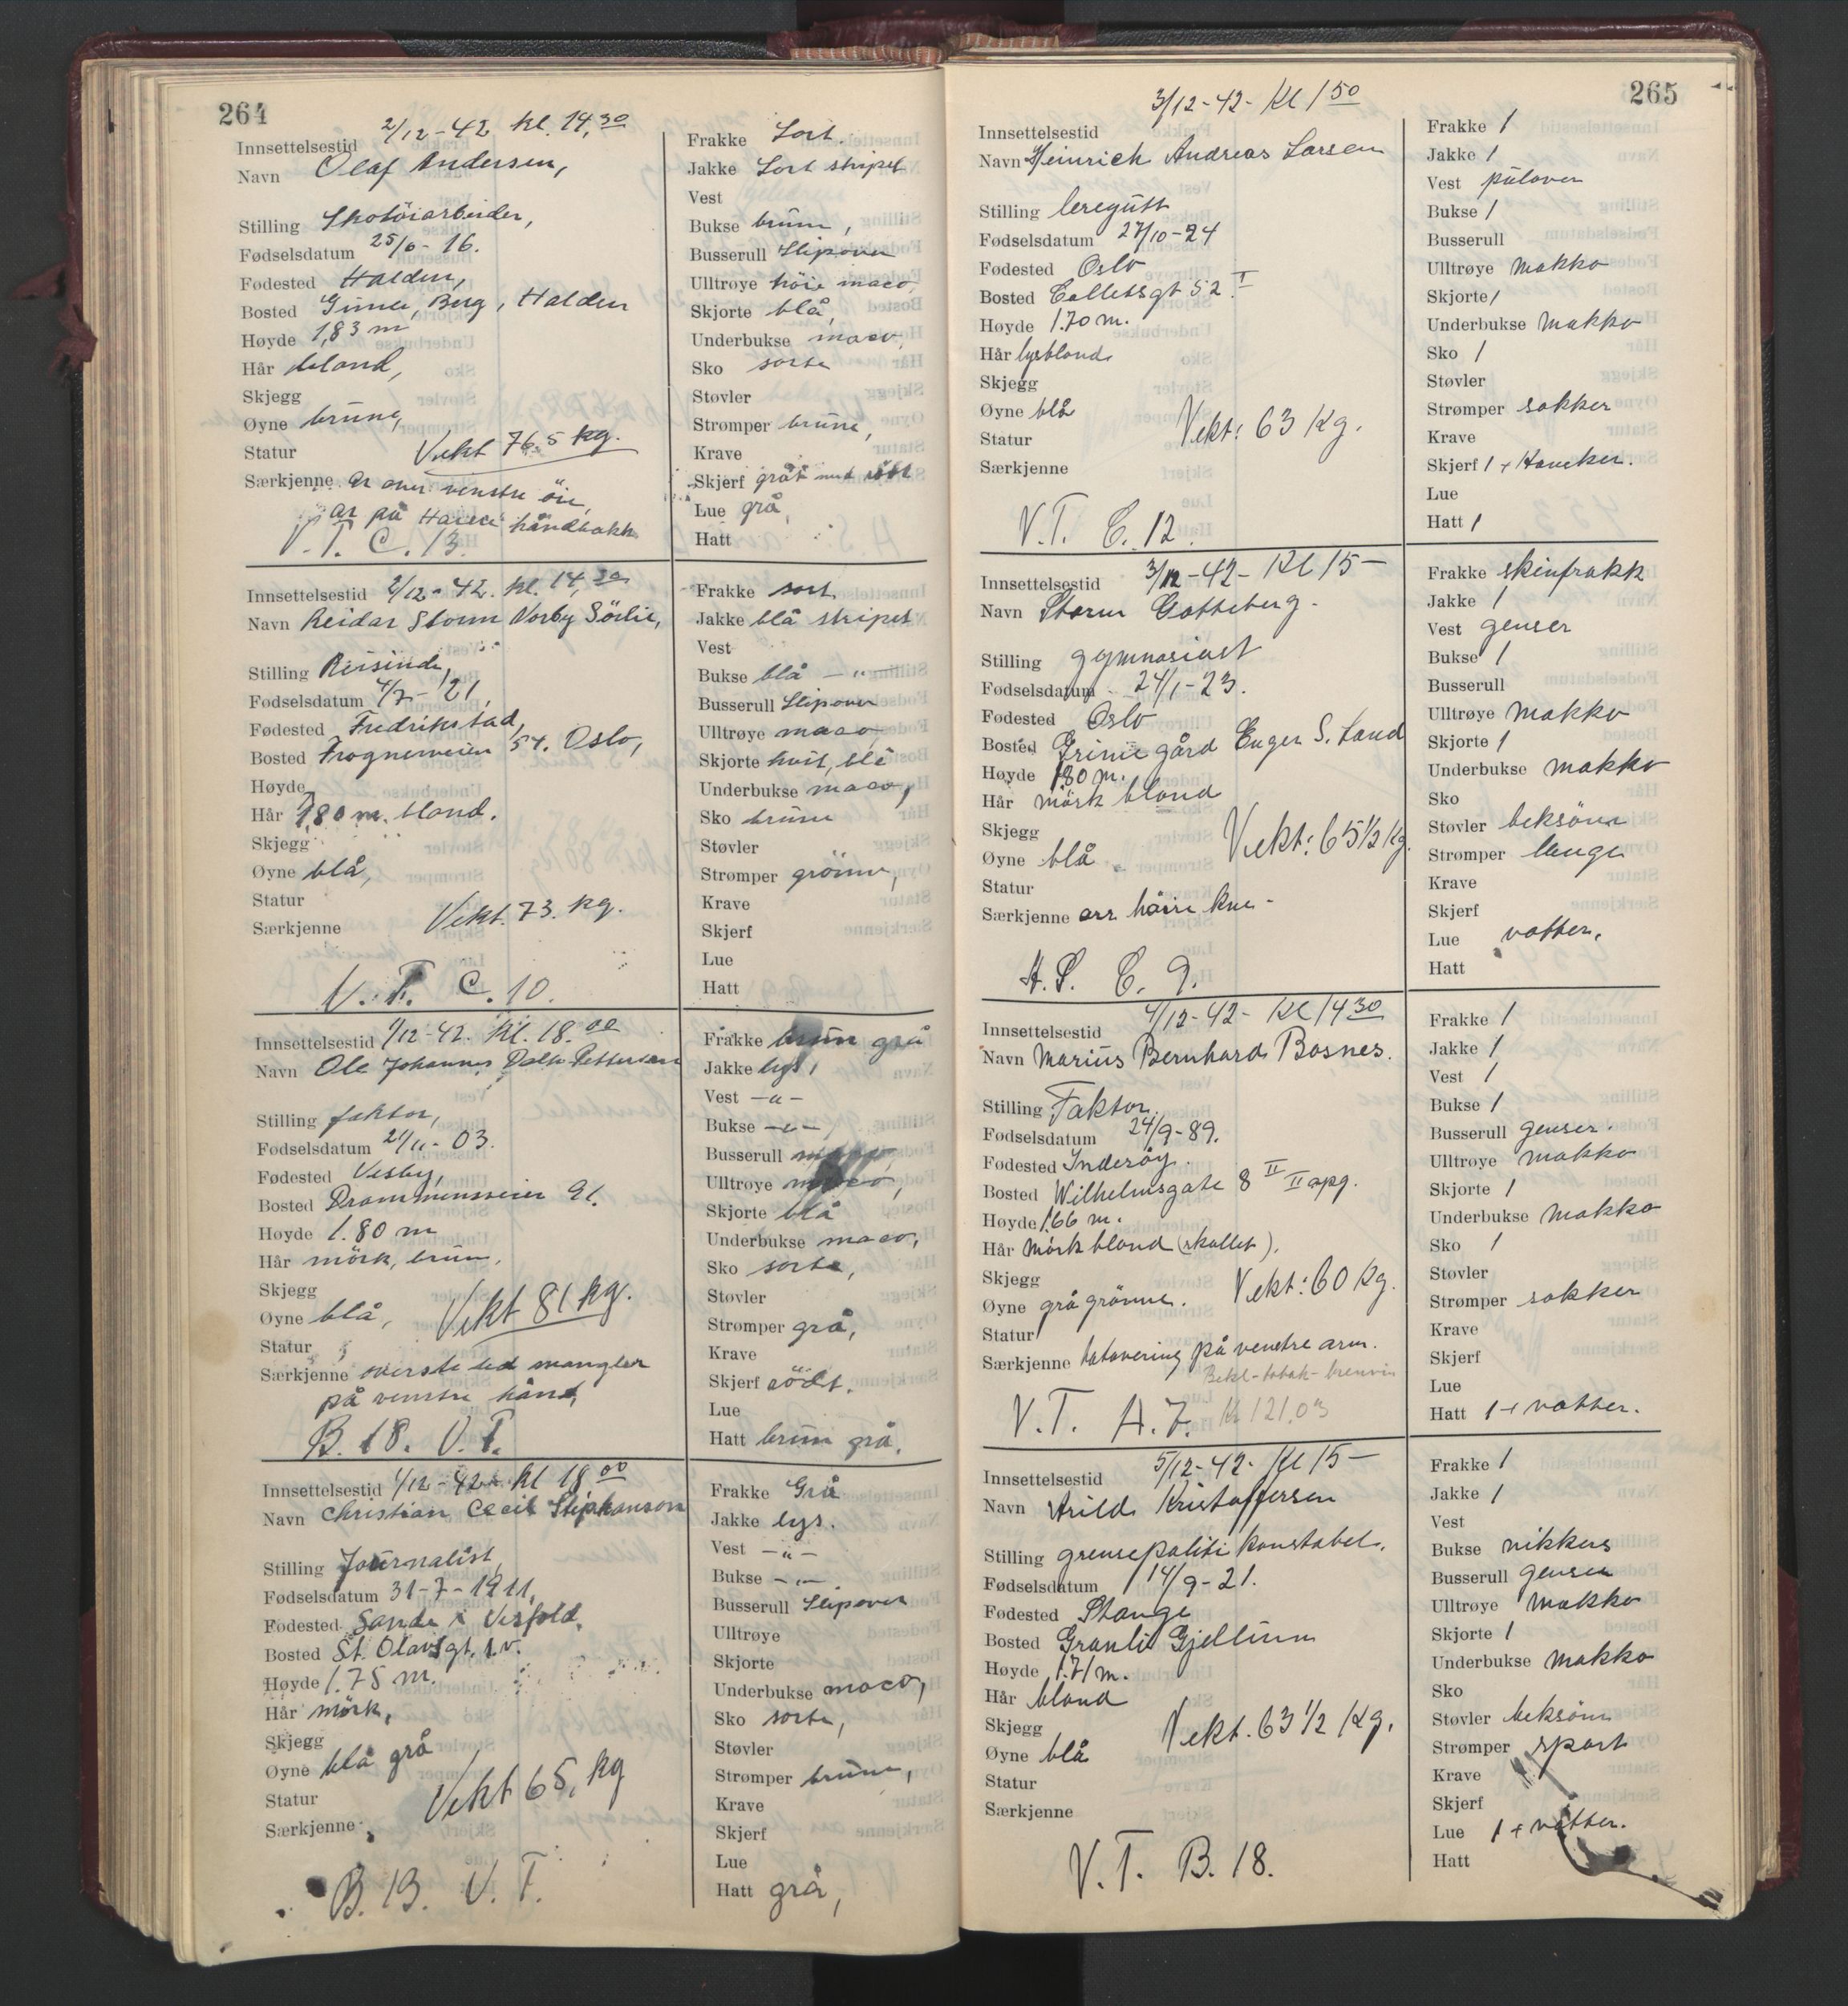 264
Innsettelsestid 2/12-42 kl. 14,30
Navn Olaf Andersen,
Stilling Skotöiarbeider,
Fødselsdatum 25/6-16.
Fødested Halden,
Bosted Gimle, Berg, Halden
Høyde 1,83 m
Hår blond,
Skjegg
Øyne brune,
Statur Vekt 76,5 kg.
Særkjenne ar over venstre öie,
ar på håndbakk
V.T. C. 13.
Frakke Sort.
Jakke Sort stripet
Vest
Bukse brun,
Busserull Slipover
Ulltrøye höie maco,
Skjorte blå,
Underbukse maco,
Sko sorte
Støvler
Strømper brune,
Krave
Skjerf grått med rödt
Lue grå,
Hatt
Innsettelsestid 2/12-42. kl. 14,30
Navn Reidar Storm Vorby Sörlie,
Stilling Reisende,
Fødselsdatum 4/7-21,
Fødested Fredrikstad,
Bosted Frognerveien 54. Oslo,
Høyde
Hår 1,80 m. blond.
Skjegg
Øyne blå,
Statur
Særkjenne Vekt. 73. kg.
V.T. C. 10.
Frakke sort,
Jakke blå stripet
Vest
Bukse blå -"-
Busserull Slipover
Ulltrøye maco,
Skjorte hvit, blå
Underbukse maco,
Sko brune
Støvler
Strømper grönne,
Krave
Skjerf
Lue
Hatt
Innsettelsestid 1/12-42. Kl. 18.00
Navn Ole Johannes Pettersen
Stilling faktor,
Fødselsdatum 21/11-03.
Fødested Vesby,
Bosted Drammensveien 91.
Høyde 1.80 m
Hår mörk, brun,
Skjegg
Øyne blå, Vekt 81 kg.
Statur
Særkjenne överste led mangler
på venstre hånd,
B. 18. V.T.
Frakke brun grå
Jakke lys,
Vest -"-
Bukse -"-
Busserull
Ulltrøye maco,
Skjorte blå
Underbukse maco,
Sko sorte,
Støvler
Strømper grå,
Krave
Skjerf rödt.
Lue
Hatt brun grå,
Innsettelsestid 1/12-42 Kl 18 00
Navn Christian Cecil Stephanson
Stilling Journalist,
Fødselsdatum 31-7-1911,
Fødested Sande i Vesfold,
Bosted St. Olavsgt, 1.v.
Høyde 1.75 m.
Hår mörk,
Skjegg
Øyne blå grå
Statur Vekt 65, kg
Særkjenne
B. 13. V. T.
Frakke Grå
Jakke lys.
Vest -"-
Bukse -"-
Busserull Slipover
Ulltrøye
Skjorte
Underbukse maco,
Sko sorte,
Støvler
Strømper brune,
Krave
Skjerf
Lue
Hatt grå,
265
Innsettelsestid 3/12-42- Kl 150
Navn Heinrich Andreas Larsen
Stilling leregutt
Fødselsdatum 27/10-24
Fødested Oslo
Bosted Colletsgt 52 I
Høyde 1.70 m.
Hår lysblond
Skjegg
Øyne blå Vekt: 63 Kg.
Statur
Særkjenne
V.T. C. 12.
Frakke 1
Jakke 1
Vest pulover
Bukse 1
Busserull
Ulltrøye Makko
Skjorte 1
Underbukse Makko
Sko 1
Støvler
Strømper sokker
Krave
Skjerf 1 + Hansker.
Lue
Hatt 1
Innsettelsestid 3/12-42- Kl 15-
Navn Storm Gotteberg.
Stilling gymnasiast
Fødselsdatum 24/1-23.
Fødested Oslo
Bosted Grime gård Enger S. Land
Høyde 180 m.
Hår mörk blond
Skjegg
Øyne blå Vekt: 65 1/2 Kg.
Statur
Særkjenne arr höire kne-
A.S. C. 9.
Frakke skinfrakk
Jakke 1
Vest genser
Bukse 1
Busserull
Ulltrøye Makko
Skjorte 1
Underbukse Makko
Sko
Støvler beksöm
Strømper lange
Krave
Skjerf
Lue votter.
Hatt
Innsettelsestid 4/12-42- Kl 14 30
Navn Marius Bernhard Bosnes.
Stilling Faktor.
Fødselsdatum 24/9-89.
Fødested Inderöy.
Bosted Wilhelmsgate 8 II II opg.
Høyde 1.66 m.
Hår Mörk blond (skallet).
Skjegg
Øyne grå grönne. Vekt: 60 Kg.
Statur
Særkjenne tatovering på venstre arm.
Bekl-tobak-brenvin
V.T. A.7. Kr 121,03
Frakke 1
Jakke 1
Vest 1
Bukse 1
Busserull genser.
Ulltrøye Makko
Skjorte 1
Underbukse Makko
Sko 1
Støvler
Strømper sokker
Krave
Skjerf
Lue
Hatt 1 + votter.
Innsettelsestid 5/12-42- Kl 15-
Navn Arild Kristoffersen
Stilling grensepoliti konstabel.
Fødselsdatum 14/9-21.
Fødested Stange
Bosted Granli Gjellum
Høyde 1.71 m.
Hår blond
Skjegg
Øyne blå Vekt. 63 1/2 Kg.
Statur
Særkjenne
V.T. B. 18.
Frakke 1
Jakke 1
Vest
Bukse nikkers
Busserull genser
Ulltrøye Makko
Skjorte 1
Underbukse Makko
Sko
Støvler beksöm
Strømper sport
Krave
Skjerf
Lue 1 + votter.
Hatt